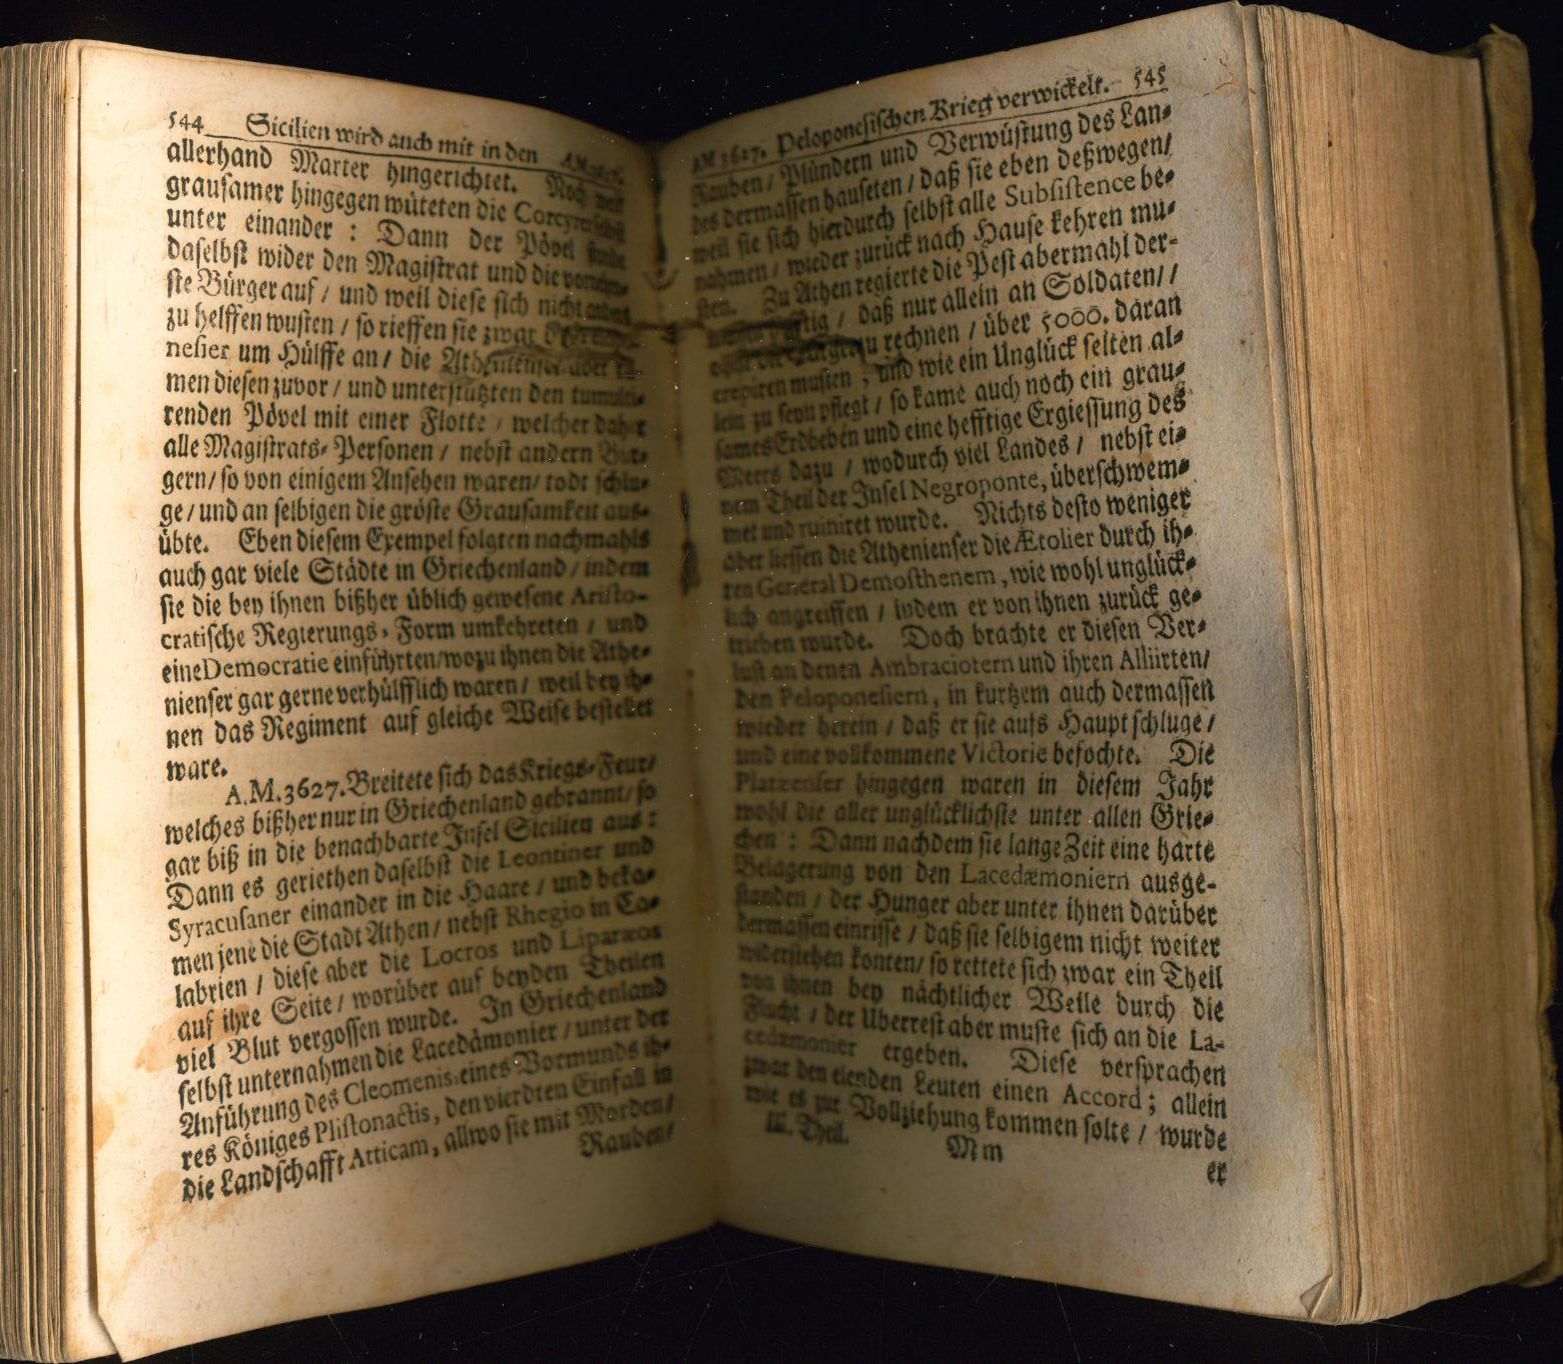 544 Sicilien wird auch mit in den A.M.3627.
allerhand Marter hingerichtet. Noch weit
grausamer hingegen wüteten die Corcyrer selbst
unter einander : Dann der Pövel stunde
daselbst wider den Magistrat und die vornehm-
ste Bürger auf / und weil diese sich nicht anderst
zu helffen wusten / so rieffen sie zwar
nesier um Hülffe an / die Athenienser aber ka-
men diesen zuvor / und unterstützten den tumulti-
renden Pövel mit einer Flotte / welcher daher
alle Magistrats-Personen / nebst andern Bür-
gern / so von einigem Ansehen waren / todt schlu-
ge / und an selbigen die gröste Grausamkeit aus-
übte. Eben diesem Exempel folgten nachmahls
auch gar viele Städte in Griechenland / indem
sie die bey ihnen bißher üblich gewesene Aristo-
cratische Regierungs-Form umkehreten / und
eine Democratie einführten / wozu ihnen die Athe-
nienser gar gerne verhülfflich waren / weil bey ih-
nen das Regiment auf gleiche Weise bestellet
ware.
A.M.3627. Breitete sich das Kriegs-Feur /
welches bißher nur in Griechenland gebrannt / so
gar biß in die benachbarte Insel Sicilien aus :
Dann es geriethen daselbst die Leontiner und
Syracusaner einander in die Haare / und beka-
men jene die Stadt Athen / nebst Rhegio in Ca-
labrien / diese aber die Locros und Liparæos
auf ihre Seite / worüber auf beyden Theilen
viel Blut vergossen wurde. In Griechenland
selbst unternahmen die Lacedämonier / unter der
Anführung des Cleomenis, eines Vormunds ih-
res Königes Plistonactis, den vierdten Einfall in
die Landschafft Atticam, allwo sie mit Morden /
Rauben /
A.M.3627. Peloponesischen Krieg verwickelt. 545
Rauben / Plündern und Verwüstung des Lan-
des dermassen hauseten / daß sie eben deßwegen /
weil sie sich hierdurch selbst alle Subsistence be-
nahmen / wieder zurück nach Hause kehren mu-
sten. Zu Athen regierte die Pest abermahl der-
/ daß nur allein an Soldaten / /
zu rechnen / über 5000. daran
crepiren musten ; und wie ein Unglück selten al-
lein zu seyn pflegt / so kame auch noch ein grau-
sames Erdbeben und eine hefftige Ergiessung des
Meers dazu / wodurch viel Landes / nebst ei-
nem Theil der Insel Negroponte, überschwem-
met und ruiniret wurde. Nichts desto weniger
aber liessen die Athenienser die Ætolier durch ih-
ren General Demosthenem, wie wohl unglück-
lich angreiffen / indem er von ihnen zurück ge-
trieben wurde. Doch brachte er diesen Ver-
lust an denen Ambraciotern und ihren Alliirten /
den Peloponesiern, in kurtzem auch dermassen
wieder herein / daß er sie aufs Haupt schluge /
und eine vollkommene Victorie befochte. Die
Platæenser hingegen waren in diesem Jahr
wohl die aller unglücklichste unter allen Grie-
chen : Dann nachdem sie lange Zeit eine harte
Belagerung von den Lacedæmoniern ausge-
standen / der Hunger aber unter ihnen darüber
dermassen einrisse / daß sie selbigem nicht weiter
widerstehen konten / so rettete sich zwar ein Theil
von ihnen bey nächtlicher Weile durch die
Flucht / der Uberrest aber muste sich an die La-
cedæmonier ergeben. Diese versprachen
zwar den elenden Leuten einen Accord ; allein
wie es zur Vollziehung kommen solte / wurde
III. Theil. Mm er